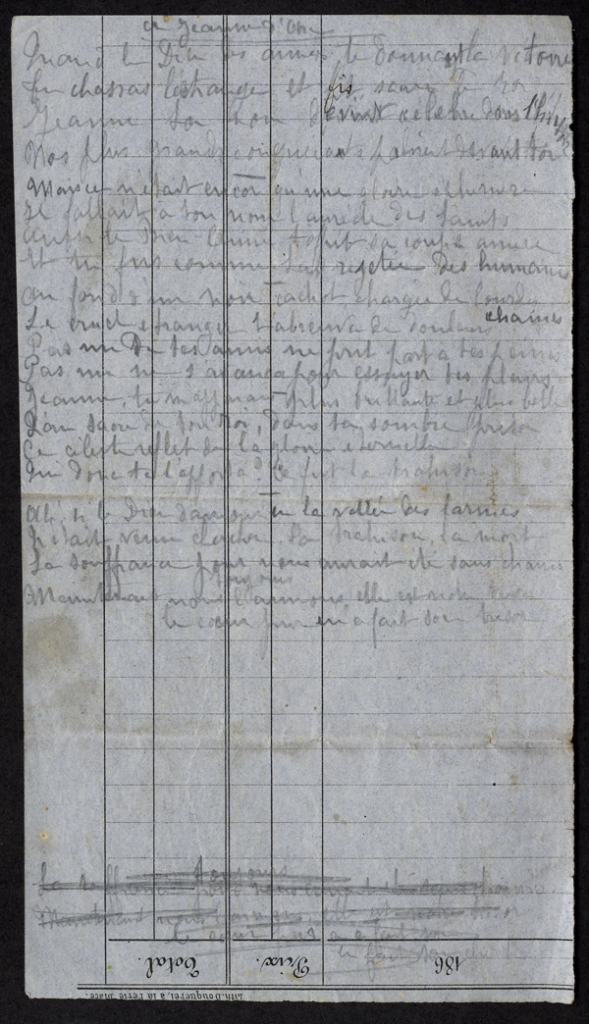 à Jeanne d'Arc
Quand le Dieu des armées te donnant la victoire
Tu chassas l'étranger et fis sacrer le roi
Jeanne ton nom devint célèbre dans l'histoire
Nos plus grands conquérants pâlirent devant toi
Mais ce n'était encor qu'une gloire éphémère
Il fallait à ton nom l'auréole des Saints
Aussi le Bien-Aimé t'offrit sa coupe amère
Et tu fus comme Lui rejetée des humains
Au fond d'un noir cachot chargée de lourdes
chaines
Le cruel étranger t'abreuva de douleurs
Pas un de tes amis ne prit part à tes peines
Pas un ne s'avança pour essuyer tes pleurs
Jeanne, tu m'apparais plus brillante et plus belle
Qu'au sacre de ton roi, dans ta sombre prison
Ce céleste reflet de la gloire éternelle
Qui donc te l'apporta? Ce fut la trahison
Ah! si le Dieu d'amour en la vallée des larmes
N'était venu chercher la trahison, la mort
La souffrance pour nous aurait été sans charmes
toujours
Maintenant nous l'aimons, elle est notre trésor
le coeur pur en a fait son trésor
toujours
La souffrance pour nous aurait été sans
Maintenant nous l'aimons elle est notre trésor
le coeur pur en a fait son
186
Prix.
Total.
Lith. Douquerel, à la Ferté Macé.